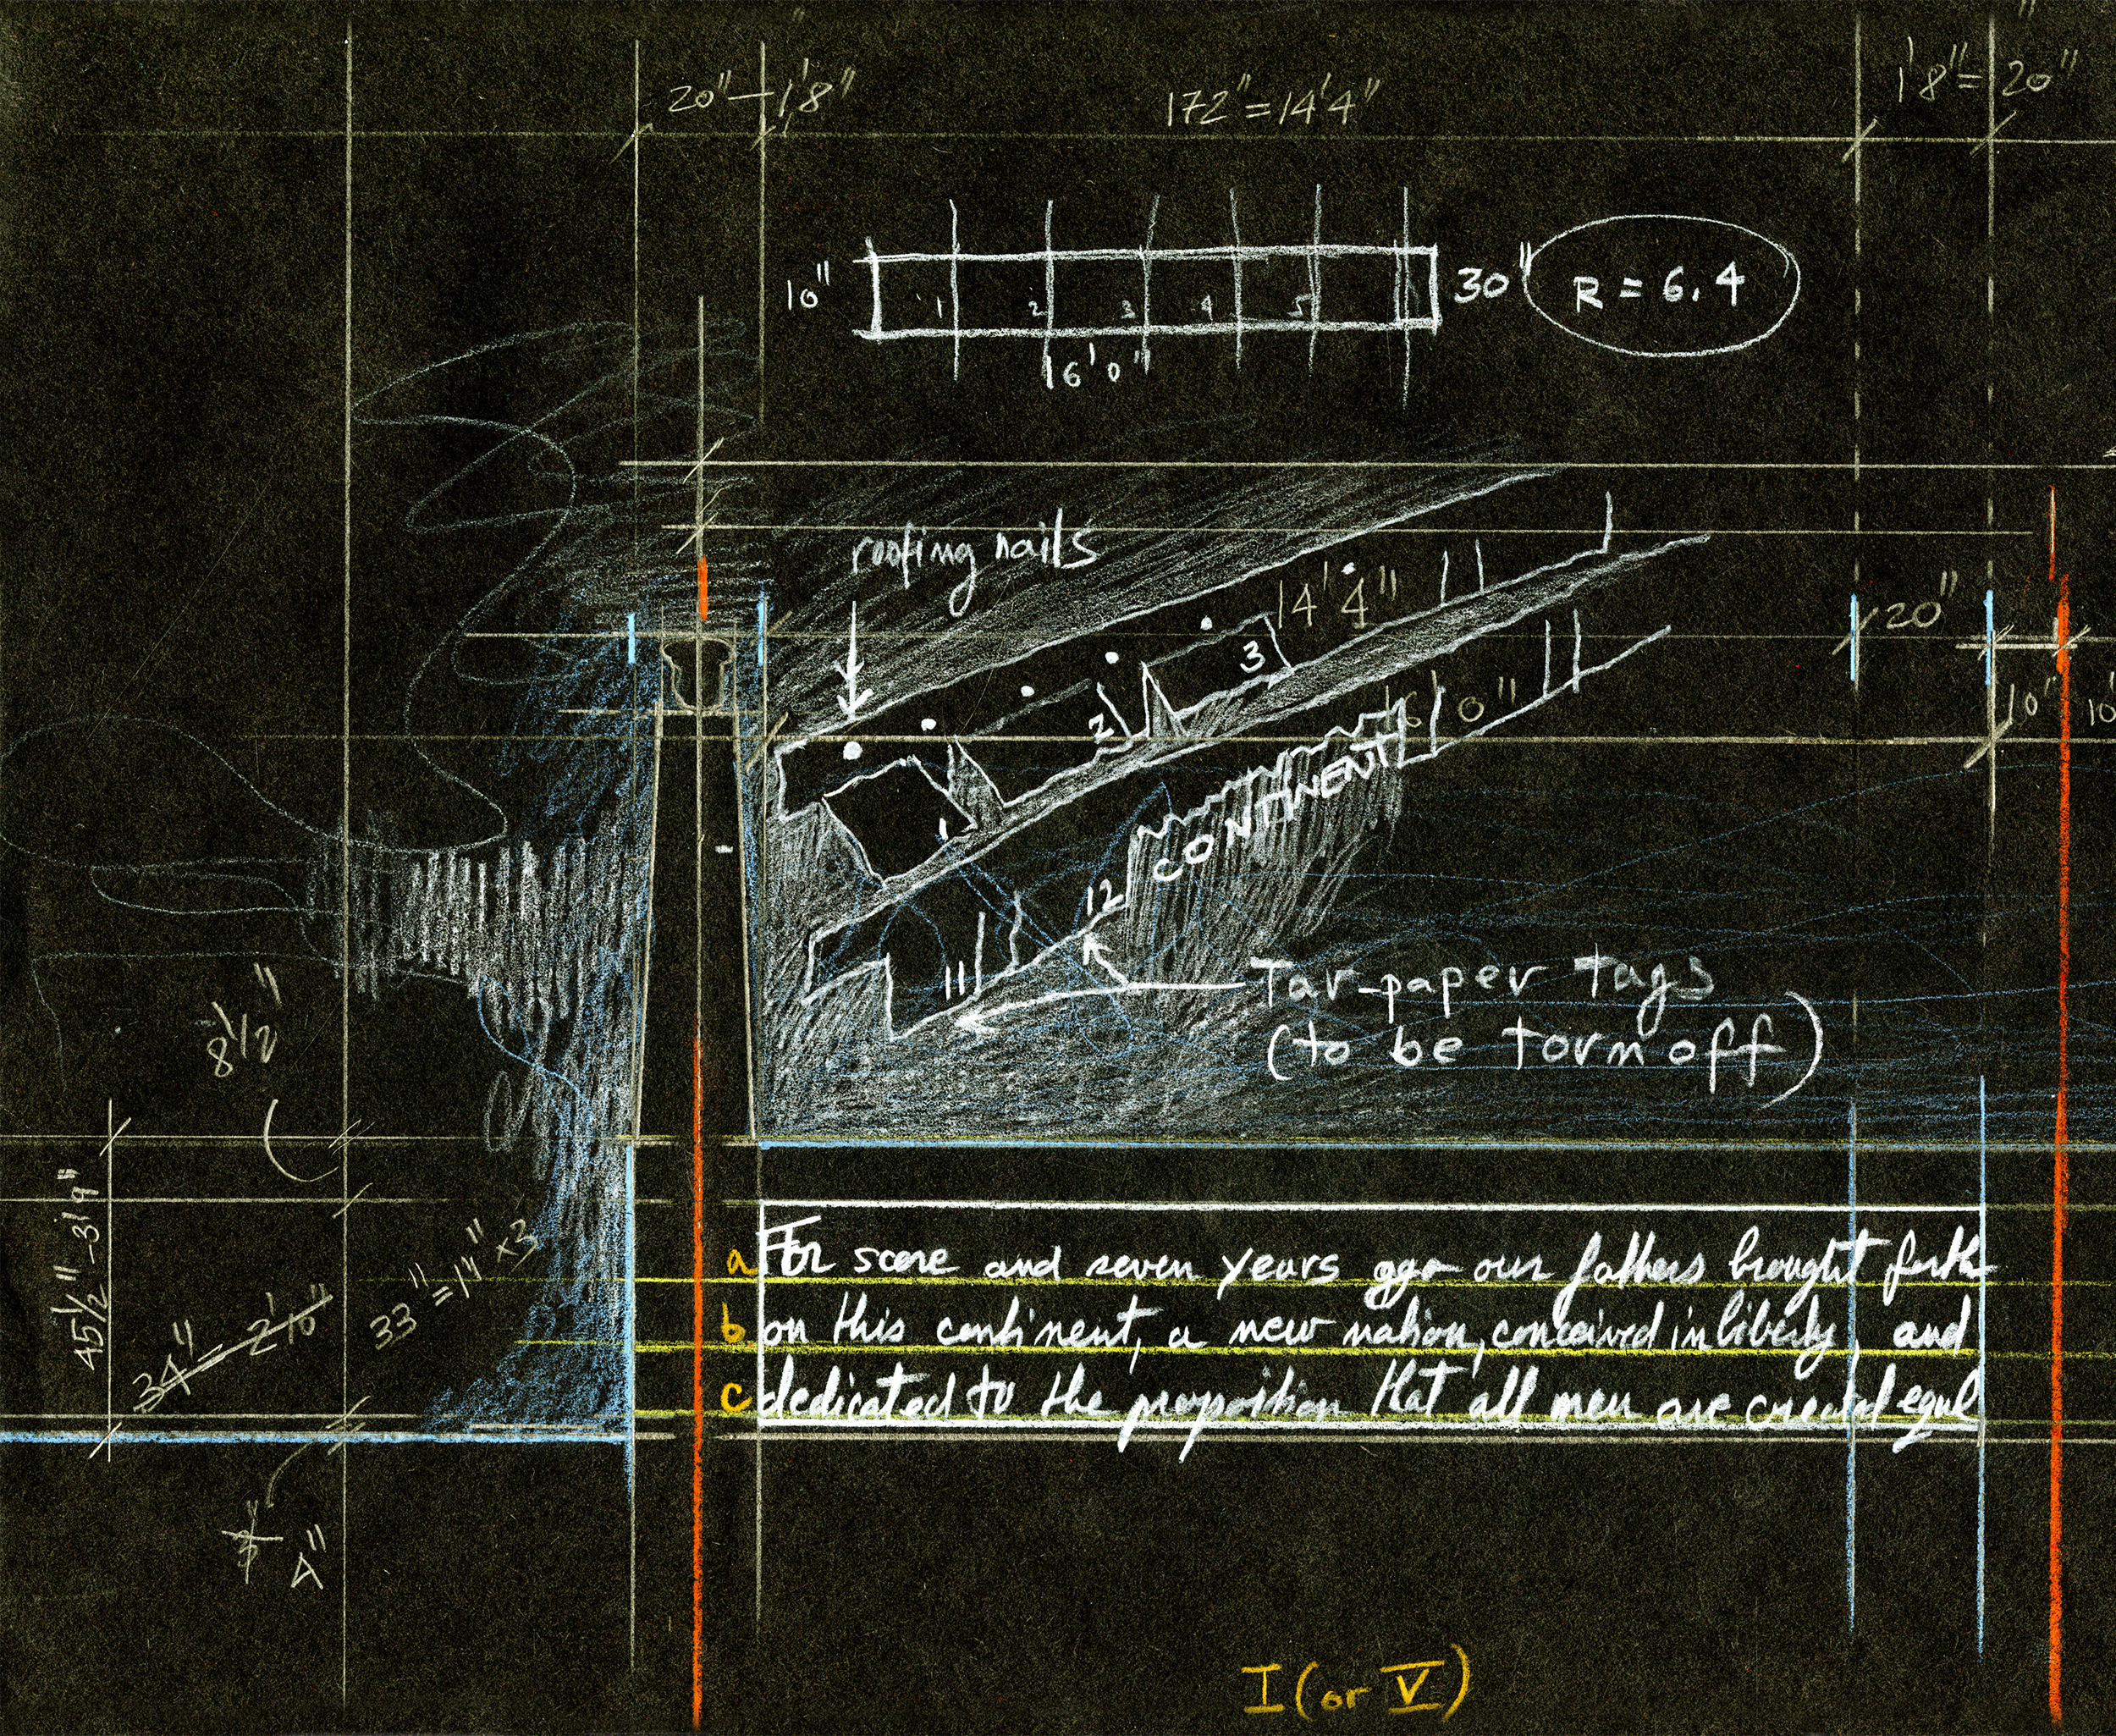 20"–1'8"
172"=14'4"
1'8"=20"
10"
1 2 3 4 5
30"
R = 6.4
6'0"
roofing nails
14'4"
20"
3
2
6'0"
10"
10"
1
CONTINENT
12
11
Tar-paper tags
(to be torn off)
8 1/2"
45 1/2"-3'9"
34" 2'10"
33"=11"×3
a For score and seven years ago our fathers brought forth
b on this continent, a new nation, conceived in liberty, and
c dedicated to the proposition that all men are created equal
3"
4"
I (or V)